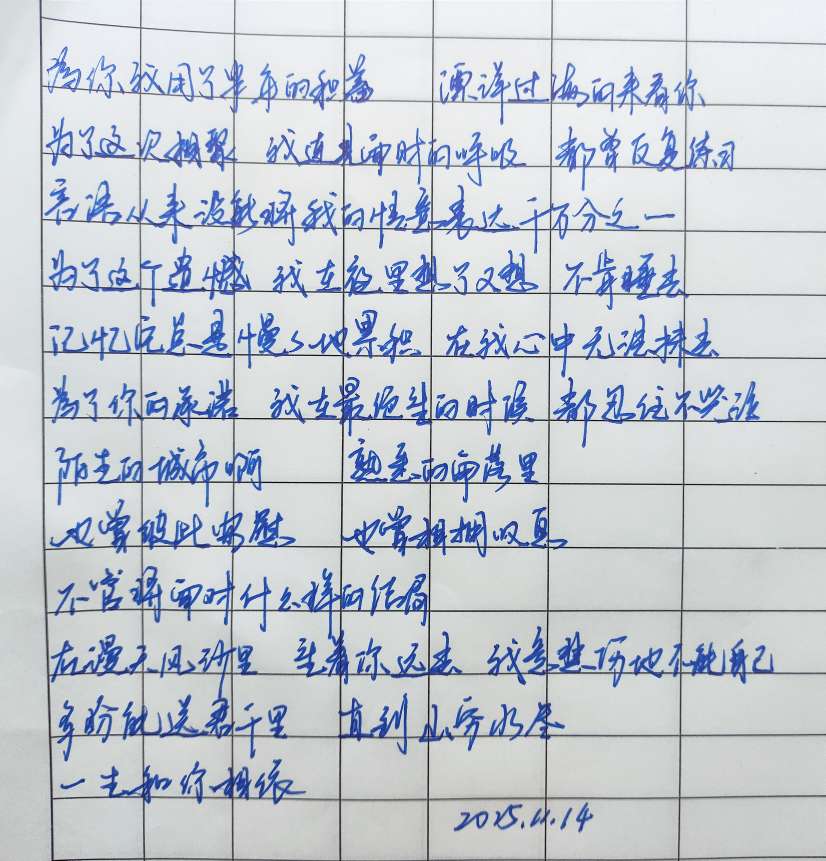 為你我用了半年的积蓄 漂洋过海的来看你
为了这次相聚 我连见面时的呼吸 都曾反复练习
言语从来没能将我的情意表达千万分之一
为了这个遗憾 我在夜里想了又想 不肯睡去
记忆它总是慢々地累积 在我心中无法抹去
為了你的承诺 我在最绝望的时候 都忍住不哭泣
陌生的城市啊 熟悉的角落里
也曾彼此安慰 也曾相拥叹息
不管将面对什么样的结局
在漫天风沙里 望着你远去 我竟悲伤地不能自己
多盼能送君千里 直到山穷水尽
一生和你相依
2025.11.14